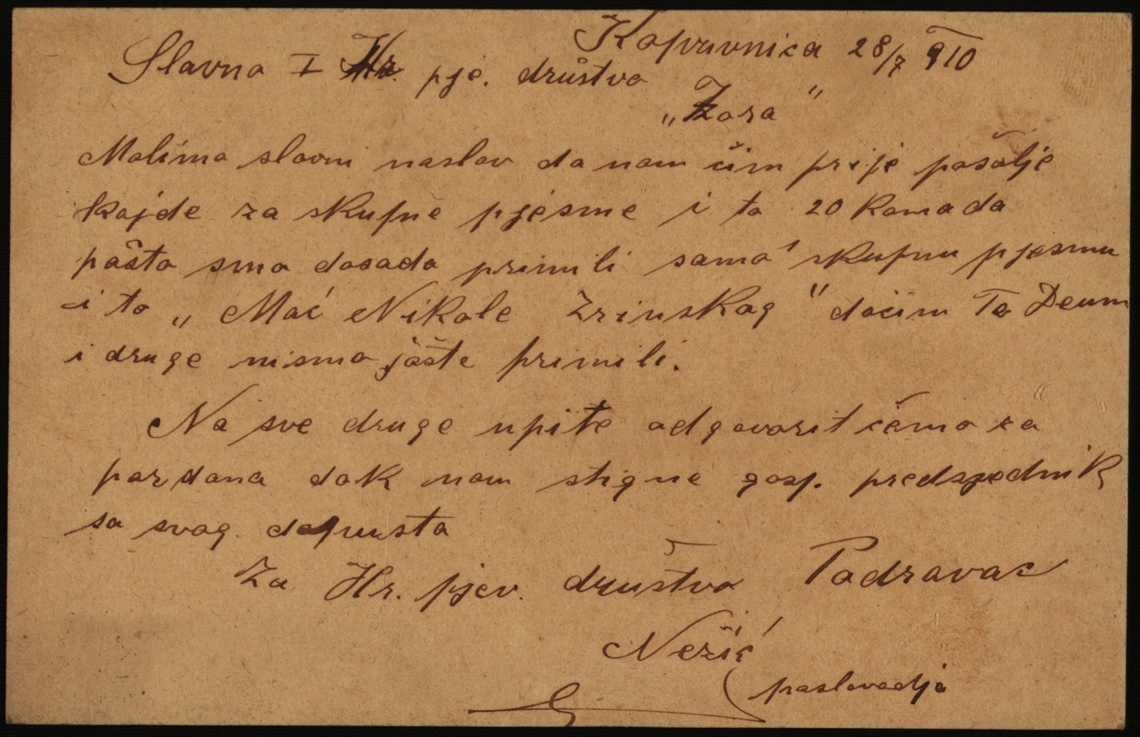 Koprivnica 28/7 910
Slavno I Hr. pje. društvo
„Zora"
Molimo slavni naslov da nam čim prije pošalje
kajde za skupne pjesme i to 20 komada
pošto smo dosada primili samo skupnu pjesmu
i to „Mač Nikole Zrinskog" dočim Te Deum
i druge nismo jošte primili.
Na sve druge upite odgovorit ćemo za
par dana dok nam stigne gosp. predsjednik
sa svog dopusta
Za Hr. pjev. društvo Podravac
Nežić
poslovodja